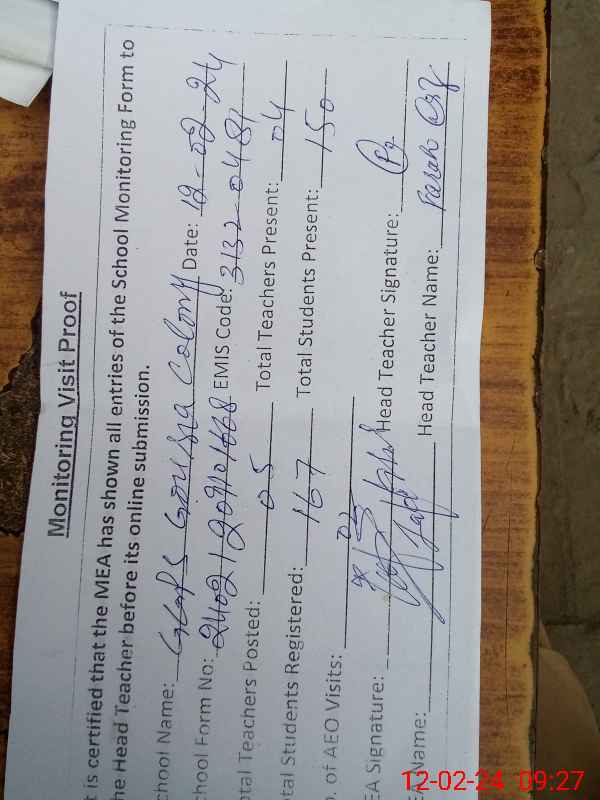 Monitoring Visit Proof
t is certified that the MEA has shown all entries of the School Monitoring Form to
he Head Teacher before its online submission.
chool Name: GGPS Gousia Colony Date: 12-02-24
chool Form No: EMIS Code: 3132-0481
otal Teachers Posted: 05 Total Teachers Present: 04
tal Students Registered: 167 Total Students Present: 150
. of AEO Visits:
EA Signature: Head Teacher Signature:
Name: Head Teacher Name: Farah
12-02-24 09:27